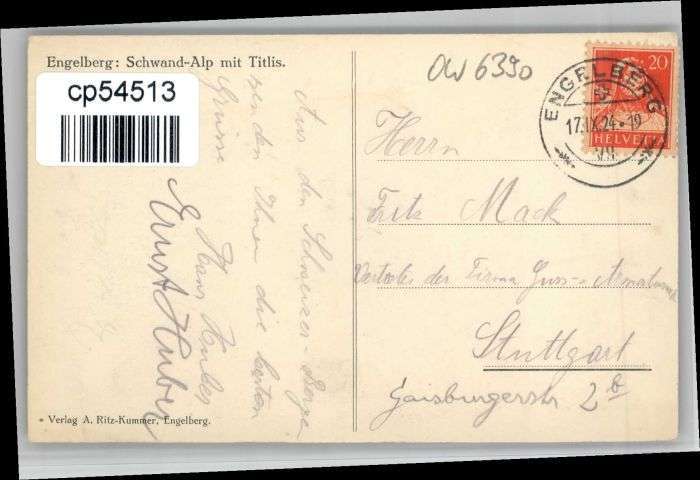 Engelberg: Schwand-Alp mit Titlis.
cp54513
OW 6390
20
HELVETIA
ENGELBERG
17.IX.24-19
VII
Aus den Schweizer-Berge
senden Ihnen die besten
Grüsse
Hans Huber
Ernst Huber
Herrn
Fritz Mack
Vertreter der Firma Guss- & Armaturen
Stuttgart
Gaisburgerstr 2b
• Verlag A. Ritz-Kummer, Engelberg.